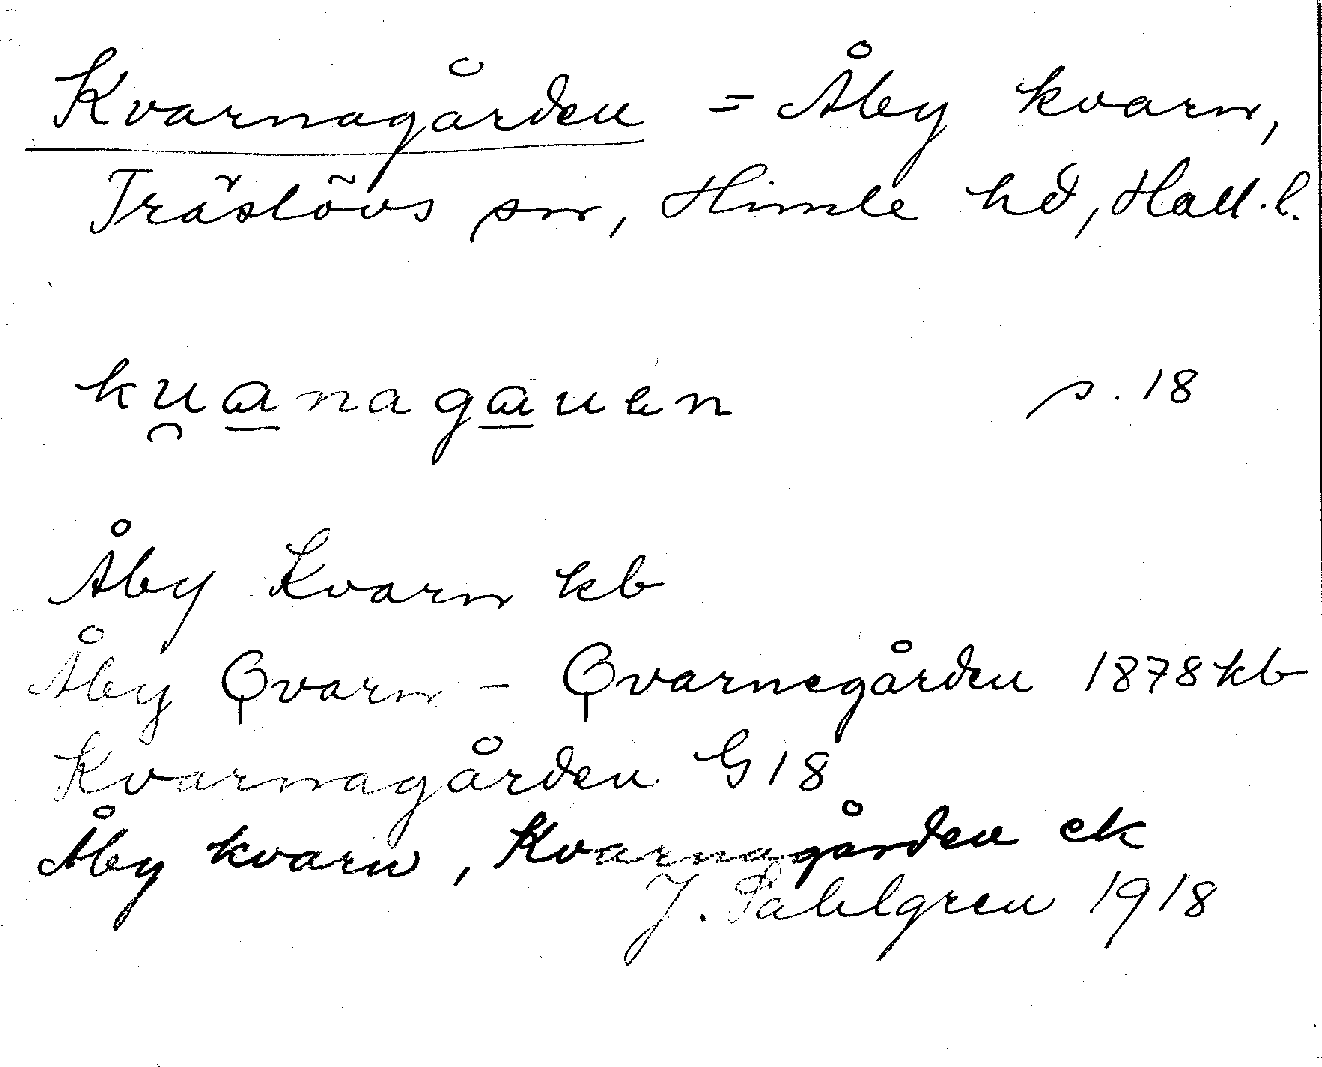 Kvarnagården = Åby kvarn,
Träslövs sn, Himle hd, Hall. l.
ku̯a̲naga̲uen s. 18
Åby Kvarn kb
Åby Qvarn – Qvarnegården 1878 kb
Kvarnagården G 18
Åby kvarn, Kvarnagården ek
J. Sahlgren 1918